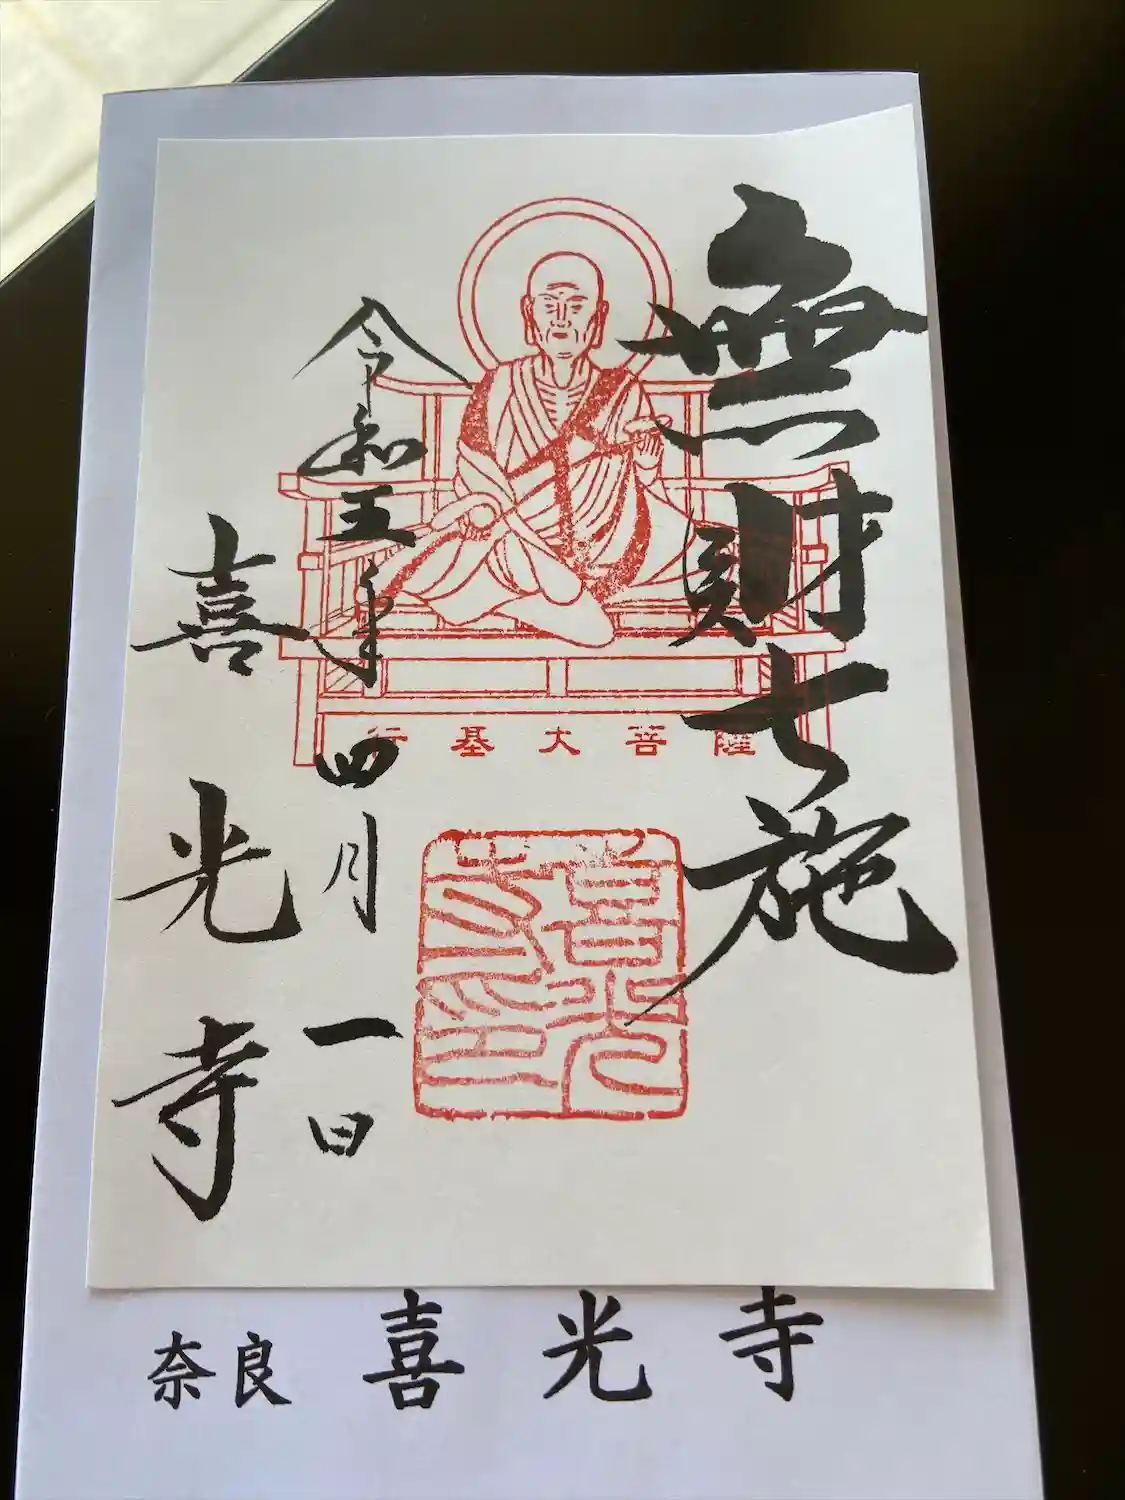 無財七施
行基大菩薩
喜光
寺印
令和五年四月一日
喜光寺
奈良 喜光寺